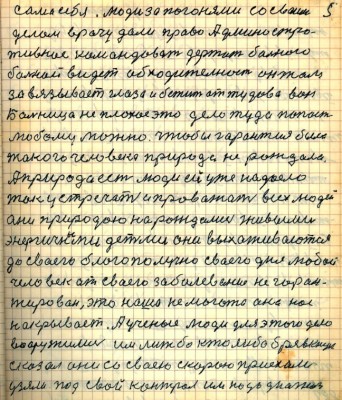 сама себя. Люди за погонями со своим 5
делом врачу дали право Админостро-
тивное командоват держит болного
болной видет обходителност он жаль
завязывает глаза и бежит от тудова вон
Болница не плохое это дело туда попаст
любому можно. Чтобы гарантия была
такого человека природа не рождала.
А природа ест люди ей уже надоело
так устречат и провожат всех людей
они природою нарождаими живыими
энергичными детми они выхаживаются
до сваего благополучно сваего дня любой
человек от сваего заболевание не гаран-
тирован, это наша не могота она нас
накрывает. А ученые люди для этого дело
вооружими им либо кто либо брявкнув
сказал они со своею скорою приехали
узяли под свой контрол им надо